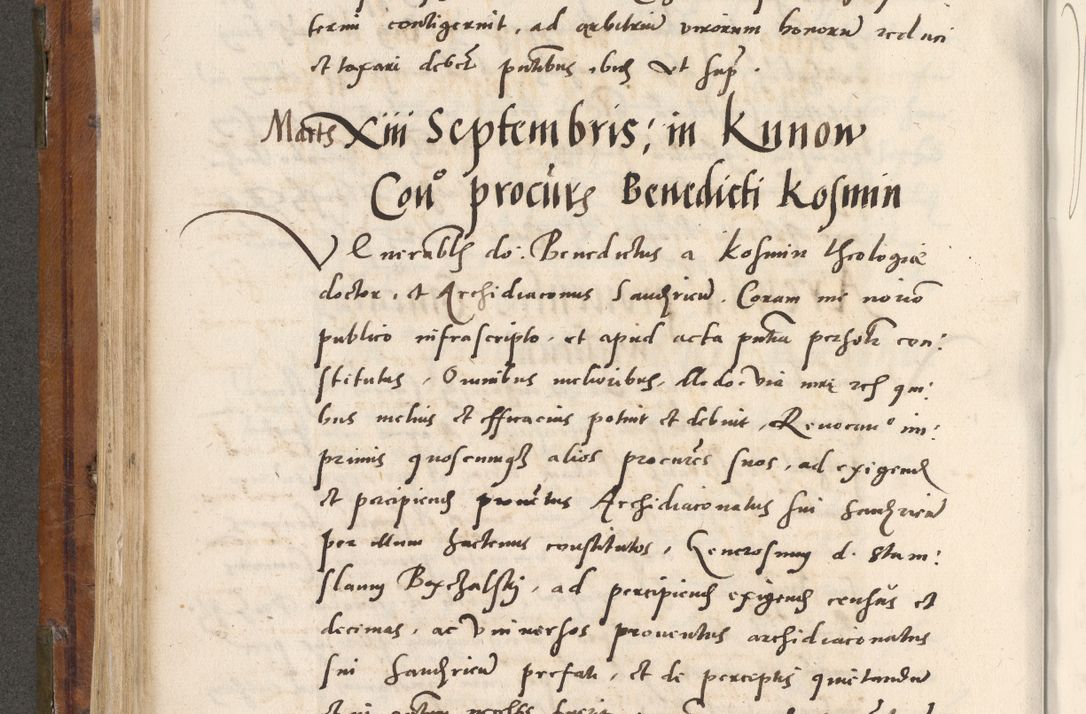 termi contigernit, ad arbitriu virorum bonoru reduci
et taxari debet putibus ibid Ut sup.
Martis Xiii Septembris; in Kunow
Con° procurs Benedicti Kosmin
VEnerabls do: Benedictus a Kosmin theologie
doctor, et Archidiaconus Sandriew. Coram me norio
publico infrascripto, et apud acta pntia persolr con:
stitutus, Omnibus melioribus, Modo, via iure
bus melius et efficacius potuit et debuit, Revocan° im:
primis quoscumqz alios procures suos, ad exigend
et percipiend proventus Archidiaconatus sui Sandriew
per illum hactenus constitutos, Generosum d. Stani:
slaum Boxzalskj, ad percipiend exigend census et
decimas, ac Universos proventus archidiaconatus
sui Sandriew prefati, et de perceptis quietandu